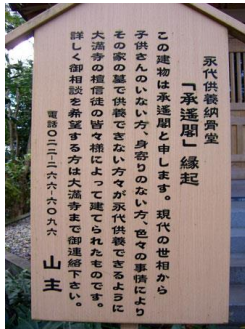 永代供養納骨堂
「承遥閣」縁起
この建物は承遥閣と申します。現代の世相から
子供さんのいない方、身寄りのない方、色々の事情により
その家の墓で供養できない方々が永代供養できるように
大満寺の檀信徒の皆々様によって建てられたものです。
詳しく御相談を希望する方は大満寺まで御連絡下さい。
電話〇二二-二六六-六〇九六
山主